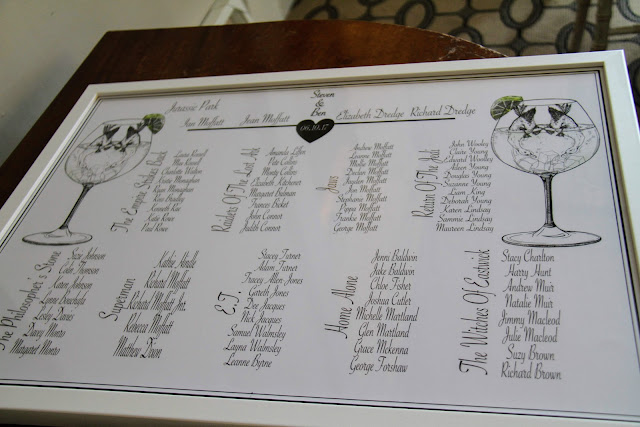 Steven
&
Ben
06.10.17
Jurassic Park
Ian Moffatt Jean Moffatt Elizabeth Dredge Richard Dredge
The Empire Strikes Back
Charlotte Watton
Ryan Monaghan
Kris Bradley
Kenneth Rae
Katie Rosee
Paul Rosee
Raiders Of The Lost Ark
Amanda Liften
Pete Collins
Monty Collins
Elizabeth Kitchener
Margaret Bowman
Francis Bicket
John Connor
Judith Connor
Jaws
Andrew Moffatt
Leanne Moffatt
Molly Moffatt
Declan Moffatt
Jon Moffatt
Stephanie Moffatt
Poppy Moffatt
Frankie Moffatt
George Moffatt
Return Of The Jedi
John Wooley
Claire Young
Edward Woolley
Aileen Young
Douglas Young
Suzanne Young
Liam King
Deborah Young
Karen Lindsey
Sammie Lindsay
Maureen Lindsay
The Philosopher's Stone
Suzy Johnson
Colin Thomson
Karen Johnson
Lesley Davies
Daisy Monro
Margaret Monro
Superman
Richard Moffatt
Richard Moffatt Jnr.
Rebecca Moffatt
Matthew Dunn
E.T.
Stacey Turner
Adam Turner
Tracey Allen Jones
Gareth Jones
Dee Jacques
Nick Jacques
Samuel Walmsley
Layna Walmsley
Leanne Byrne
Home Alone
Jenni Baldwin
Jake Baldwin
Chloe Fisher
Joshua Cutler
Michelle Maitland
Glen Maitland
Grace Mckenna
George Forshaw
The Witches Of Eastwick
Stacy Charlton
Harry Hunt
Andrew Muir
Natalie Muir
Jimmy Macleod
Julie Macleod
Suzy Brown
Richard Brown